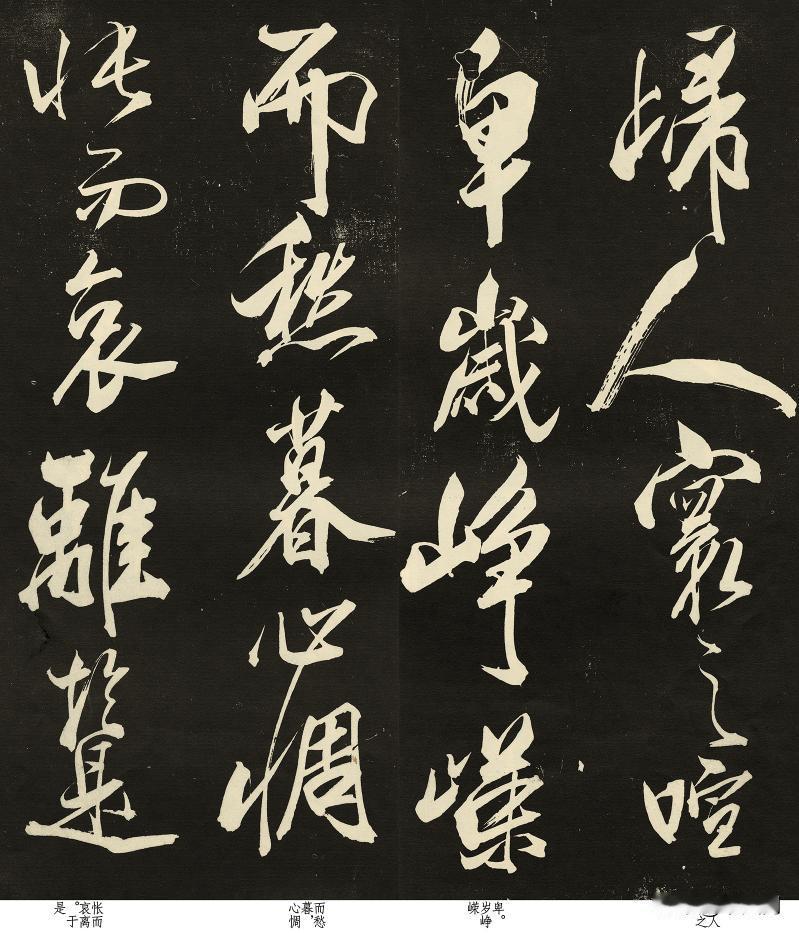 歸人寰之喧
卑歲崢嶸
而愁暮心惆
悵而哀離於是
人
之
卑。
岁峥
嵘
而愁
暮，
心惆
怅而
哀离
。于
是